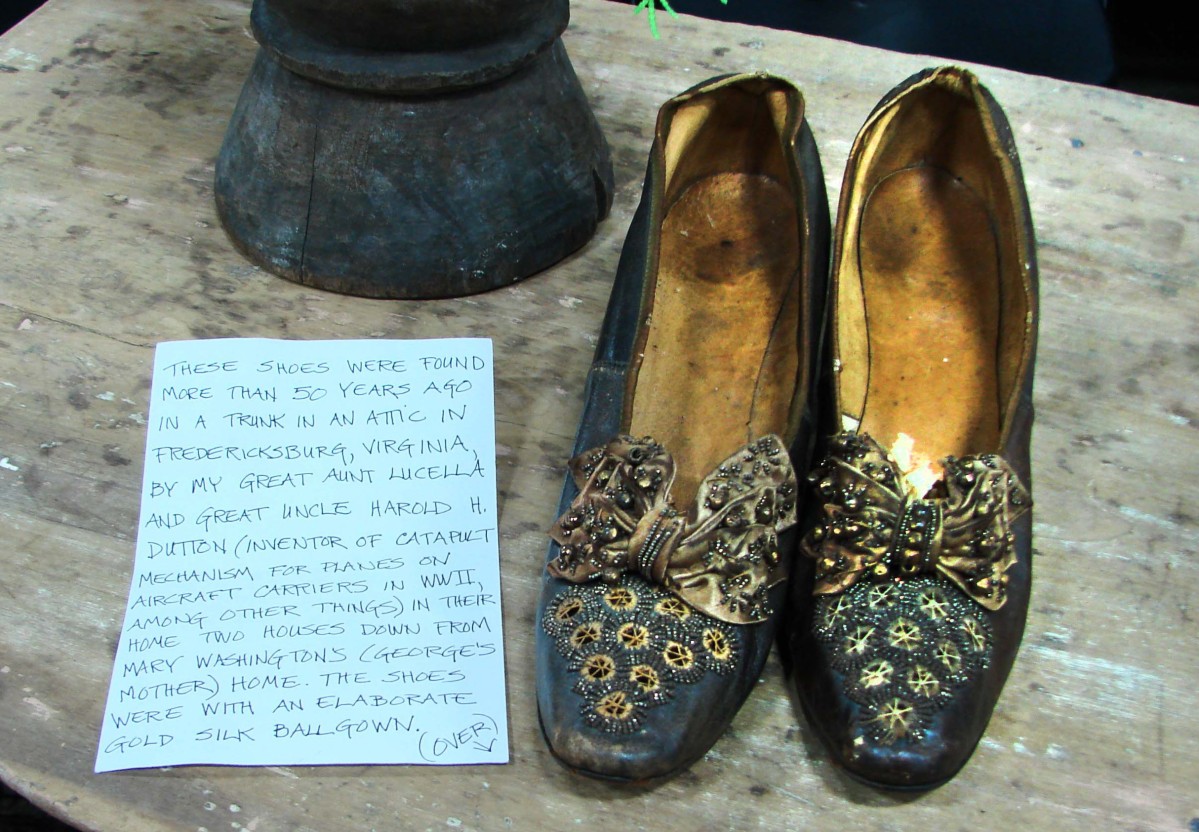 THESE SHOES WERE FOUND
MORE THAN 50 YEARS AGO
IN A TRUNK IN AN ATTIC IN
FREDERICKSBURG, VIRGINIA,
BY MY GREAT AUNT LUCELLA
AND GREAT UNCLE HAROLD H.
DUTTON (INVENTOR OF CATAPULT
MECHANISM FOR PLANES ON
AIRCRAFT CARRIERS IN WWII,
AMONG OTHER THINGS) IN THEIR
HOME TWO HOUSES DOWN FROM
MARY WASHINGTON'S (GEORGE'S
MOTHER) HOME. THE SHOES
WERE WITH AN ELABORATE
GOLD SILK BALLGOWN.
(OVER)